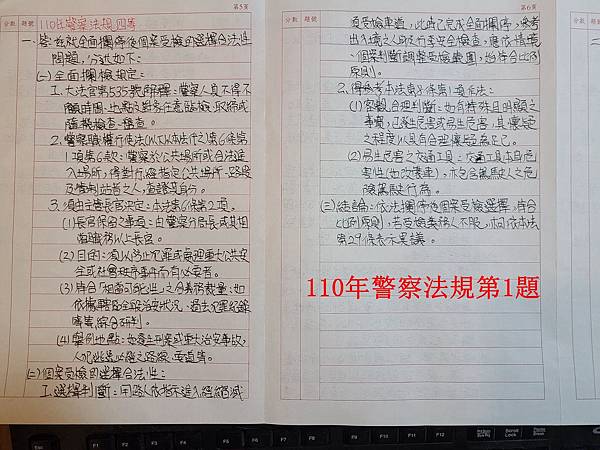 第5頁
分數 題號
110年警察法規四等
一、答:茲就全面攔停後個案受檢的選擇合法性
問題,分述如下:
(一)全面攔檢規定:
1、大法官第535號解釋:警察人員不得不
顧時間、地點及對象任意臨檢、取締或
隨機檢查、盤查。
2、警察職權行使法(以下本法行之)第6條第
1項第6款:警察於公共場所或合法進
入場所,得對行經指定公共場所、路段
及管制站者之人,查證其身分。
3、須由主管長官決定:本法第6條第2項。
(1)長官保留之事項:由警察分局長或其相
當職務以上長官。
(2)目的:須以防止犯罪或處理重大公共安
全或社會秩序事件而有必要者。
(3)符合「相當可能性」之合義務裁量:如
依據轄區全般治安狀況、過去犯罪紀錄
等等,綜合研判。
(4)案例地點:如發生刑案或重大治安事故,
人犯逃逸必經之路線、要道等。
(二)個案受檢的選擇合法性:
1、選擇判斷:用路人依指示進入經縮減
第6頁
分數 題號
更受檢車道,此時已完成全面攔停,參考
出入境之人時及行李安全檢查,應依情境
、個案判斷調整受檢範圍,始符合比例
原則。
2、得參考本法第8條第1項作法:
(1)客觀合理判斷:如有特殊且明顯之
事實,已發生危害或易生危害,其懷疑
之程度以具有合理懷疑為足已。
(2)易生危害之交通工具:交通工具本身危
害性(如改裝車),亦包含駕駛人之危
險駕駛行為。
(三)結論:依法攔停後個案受檢選擇,符合
比例原則,若受檢義務人不服,亦可依本法
第29條表示異議。
110年警察法規第1題
分數 題號
Esc F1 F2 F3 F4 F5 F6 F7 F8 F9 F10 F11 F12
Scroll
Lock